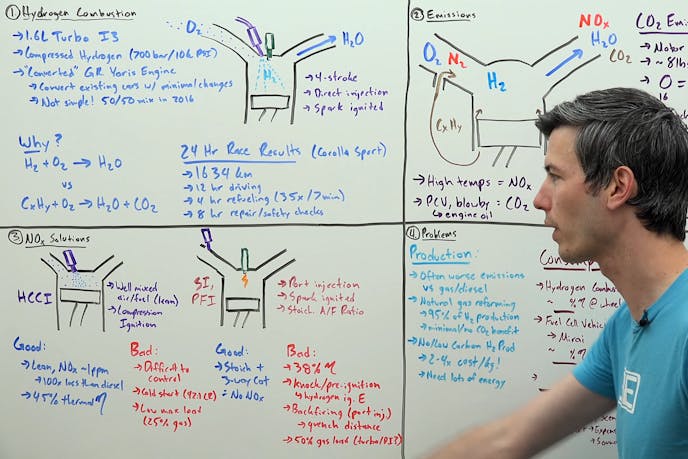 ① Hydrogen Combustion
→ 1.6L Turbo I3
→ Compressed Hydrogen (700 bar/10k PSI)
→ "Converted" GR Yaris Engine
→ Convert existing cars w/ minimal changes
→ Not simple! 50/50 mix in 2016
O₂
H₂
H₂O
→ 4-stroke
→ Direct injection
→ Spark ignited
Why?
H₂ + O₂ → H₂O
vs
CxHy + O₂ → H₂O + CO₂
24 Hr Race Results (Corolla Sport)
→ 1634 km
→ 12 hr driving
→ 4 hr refueling (35x/7min)
→ 8 hr repair/safety checks
② Emissions
O₂ N₂
H₂
NOx
H₂O
CO₂
CxHy
→ High temps = NOx
→ PCV, blowby = CO₂
↳ engine oil
CO₂ Emi
→ ~ 8lb
→ O =
16
③ NOx Solutions
HCCI
→ Well mixed
air/fuel (lean)
→ Compression
Ignition
Good:
→ Lean, NOx ~1ppm
→ 100x less than diesel
→ 45% thermal η
Bad:
→ Difficult to
control
→ Cold start
→ Low max load
(25% gas)
SI,
PFI
→ Port injection
→ Spark ignited
→ Stoich. A/F Ratio
Good:
→ Stoich +
3-way Cat
∴ No NOx
Bad:
→ 38% η
→ Knock/pre-ignition
↳ hydrogen ig. E
→ Backfiring (port inj.)
→ quench distance
→ 50% gas load (turbo/DI?)
④ Problems
Production:
→ Often worse emissions
vs gas/diesel
→ Natural gas reforming
→ 95% of H₂ production
→ minimal/no CO₂ benefit
→ No/low Carbon H₂ Prod
→ 2-4x cost/kg!
→ Need lots of energy
→ Hydrogen Combus
→ Fuel Cell Vehicl
→ Mirai
E